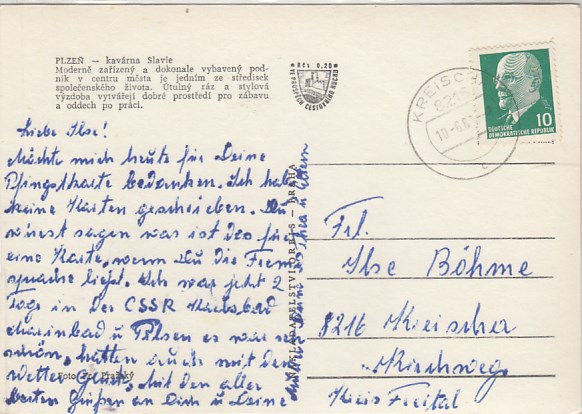 PLZEŇ — kavárna Slavie
Moderně zařízený a dokonale vybavený pod-
nik v centru města je jedním ze středisek
společenského života. Útulný ráz a stylová
výzdoba vytvářejí dobré prostředí pro zábavu
a oddech po práci.
Kčs 0,20
VE PROSPĚCH CESTOVNÍHO RUCHU
KREISCHA
10
DEUTSCHE
DEMOKRATISCHE REPUBLIK
Liebe Ilse!
Möchte mich heute für Deine
Pfingstkarte bedanken. Ich hab
keine Karten geschrieben. Du
wirst sagen was ist das für
eine Karte, wenn Du die Fremd
sprache liest. Ich war jetzt 2
Tage in der CSSR Karlsbad
Marienbad u Pilsen es war sehr
schön, hatten auch mit dem
Wetter Glück, Mit den aller
besten Grüßen an Dich u Deine
NAKLADATELSTVÍ ORBIS — PRAHA
Foto
Frl.
Ilse Böhme
8216 Kreischa
Kirchweg
Kreis Freital